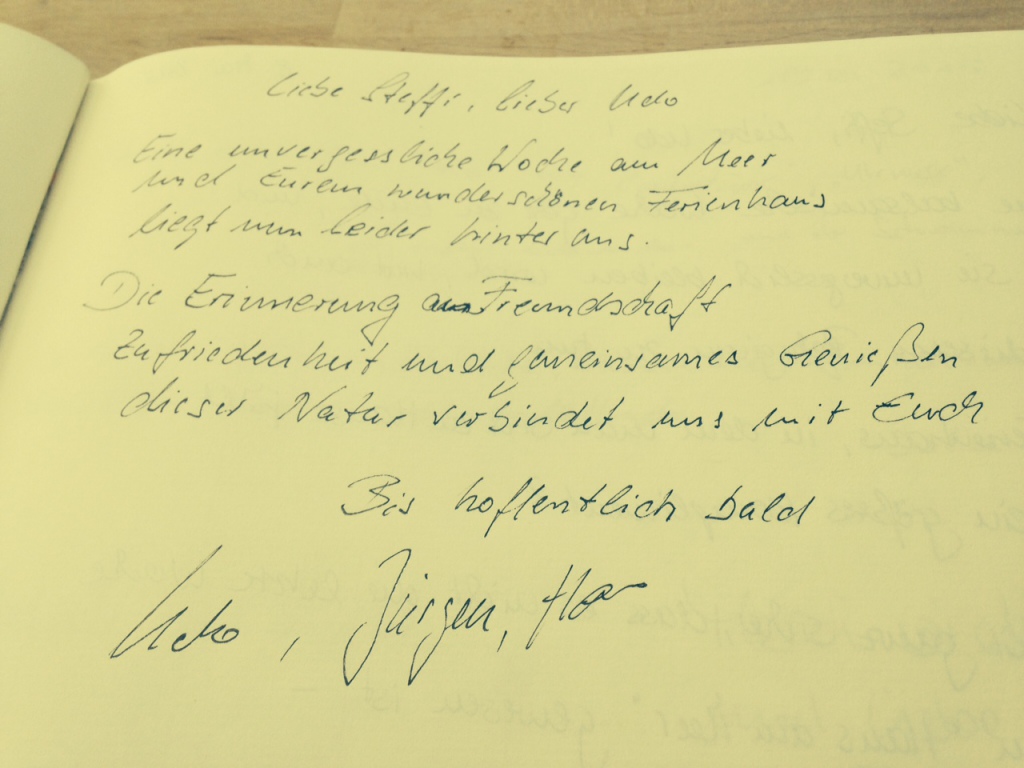 Liebe Steffi, lieber Udo
Eine unvergessliche Woche am Meer
und Eurem wunderschönen Ferienhaus
liegt nun leider hinter uns.
Die Erinnerung an Freundschaft
Zufriedenheit und gemeinsames Genießen
dieser Natur verbindet uns mit Euch
Bis hoffentlich bald
Udo, Jürgen,